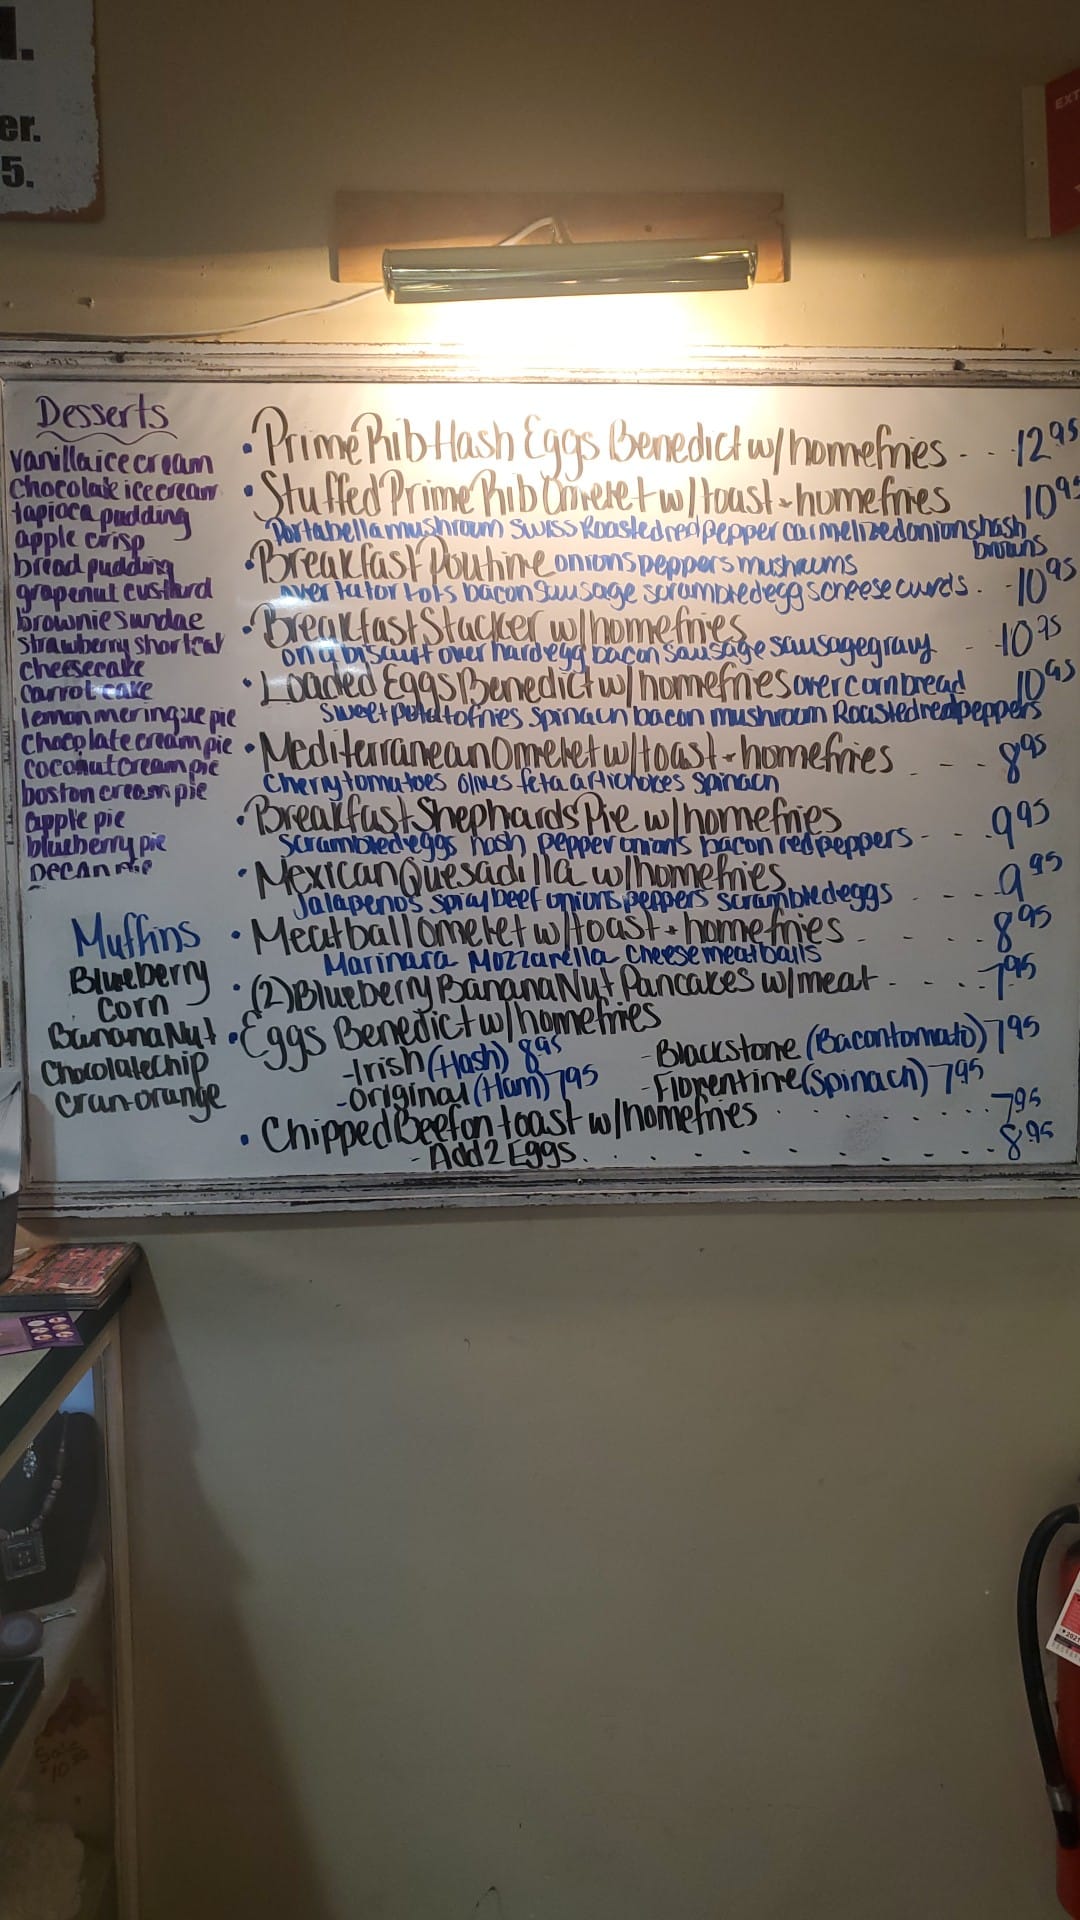 er.
5.
EXT
Desserts
vanilla ice cream
chocolate ice cream
tapioca pudding
apple crisp
bread pudding
grapenut custard
brownie sundae
strawberry shortcak
cheesecake
carrot cake
lemon meringue pie
chocolate cream pie
coconut cream pie
boston cream pie
apple pie
blueberry pie
pecan pie
Muffins
Blueberry
Corn
Banana Nut
Chocolate Chip
Cran-orange
• Prime Rib Hash Eggs Benedict w/homefries - - - 12 95
• Stuffed Prime Rib Omelet w/toast + homefries 10 95
Portabella mushroom Swiss Roasted red pepper carmelized onions hash
browns
• Breakfast Poutine onions peppers mushrums
over tator tots bacon Sausage scrambled eggs cheese curds. - 10 95
• Breakfast Stacker w/homefries
on a biscuit over hard egg bacon sausage sausage gravy - 10 95
• Loaded Eggs Benedict w/homefries over cornbread 10 95
sweet potato fries spinach bacon mushroom Roasted red peppers
• Mediterranean Omelet w/toast + homefries - - - 8 95
Cherry tomatoes olives feta artichokes spinach
• Breakfast Shephards Pie w/homefries
scrambled eggs hash pepper onions bacon red peppers - - - 9 95
• Mexican Quesadilla w/homefries
Jalapenos spicy beef onions peppers scrambled eggs - - - 9 95
• Meatball Omelet w/toast + homefries - - - - 8 95
Marinara Mozzarella cheese meatballs
• (2) Blueberry Banana Nut Pancakes w/meat - - - - 7 95
• Eggs Benedict w/homefries
- Irish (Hash) 8 95 - Blackstone (Bacon tomato) 7 95
- Original (Ham) 7 95 - Florentine (Spinach) 7 95
• Chipped Beef on toast w/homefries . . . . . . . . . 7 95
- Add 2 Eggs. . . . . . . . . . . 8.95
Sale
$10
2021